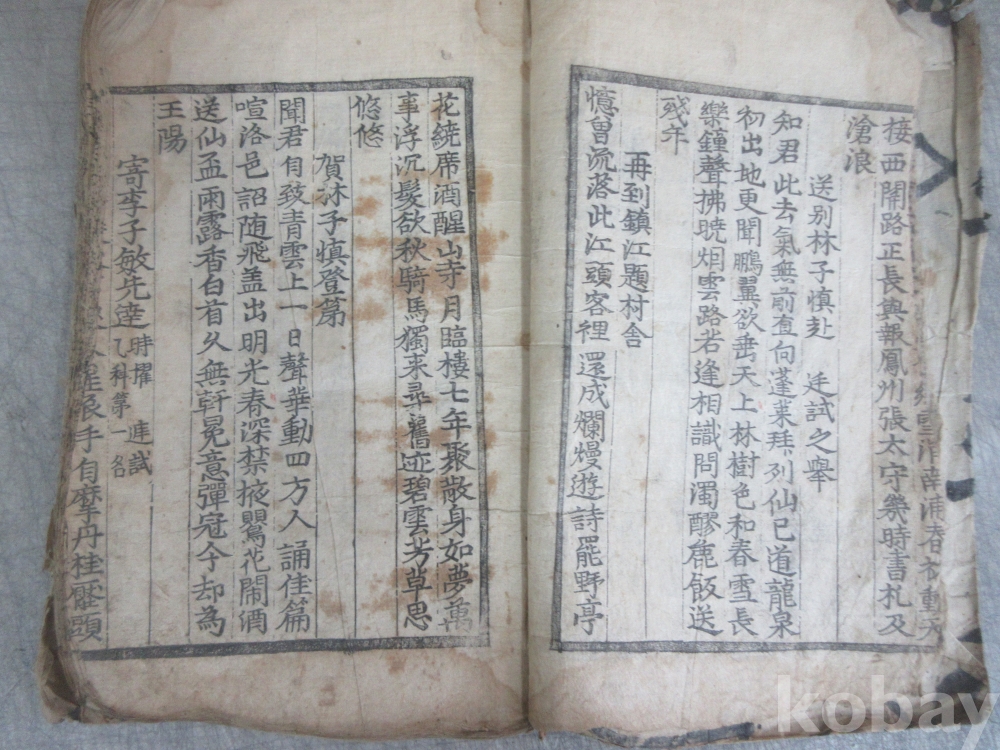 雪消南浦春
棲西關路正長輿報鳳州張太守幾時書札及
滄浪
送別林子愼赴 廷試之擧
知君此去氣無前直向蓬萊拜列仙已道龍泉
初出地更聞鵬翼欲垂天上林樹色和春雪長
樂鐘聲拂曉烟雲路若逢相識問濁醪麁飯送
殘年
再到鎭江題村舍
憶曾流落此江頭客裡還成爛熳遊詩罷野亭
花繞席酒醒山寺月臨樓七年聚散身如夢萬
事浮沉髮欲秋騎馬獨來尋舊迹碧雲芳草思
悠悠
賀林子愼登第
聞君自致靑雲上一日聲華動四方人誦佳篇
喧洛邑詔随飛盖出明光春深禁掖鸎花閙酒
送仙盃雨露香白首久無軒冕意彈冠今却為
王陽
寄李子敏先達 時擢 廷試乙科第一名
手自摩丹桂
kobay